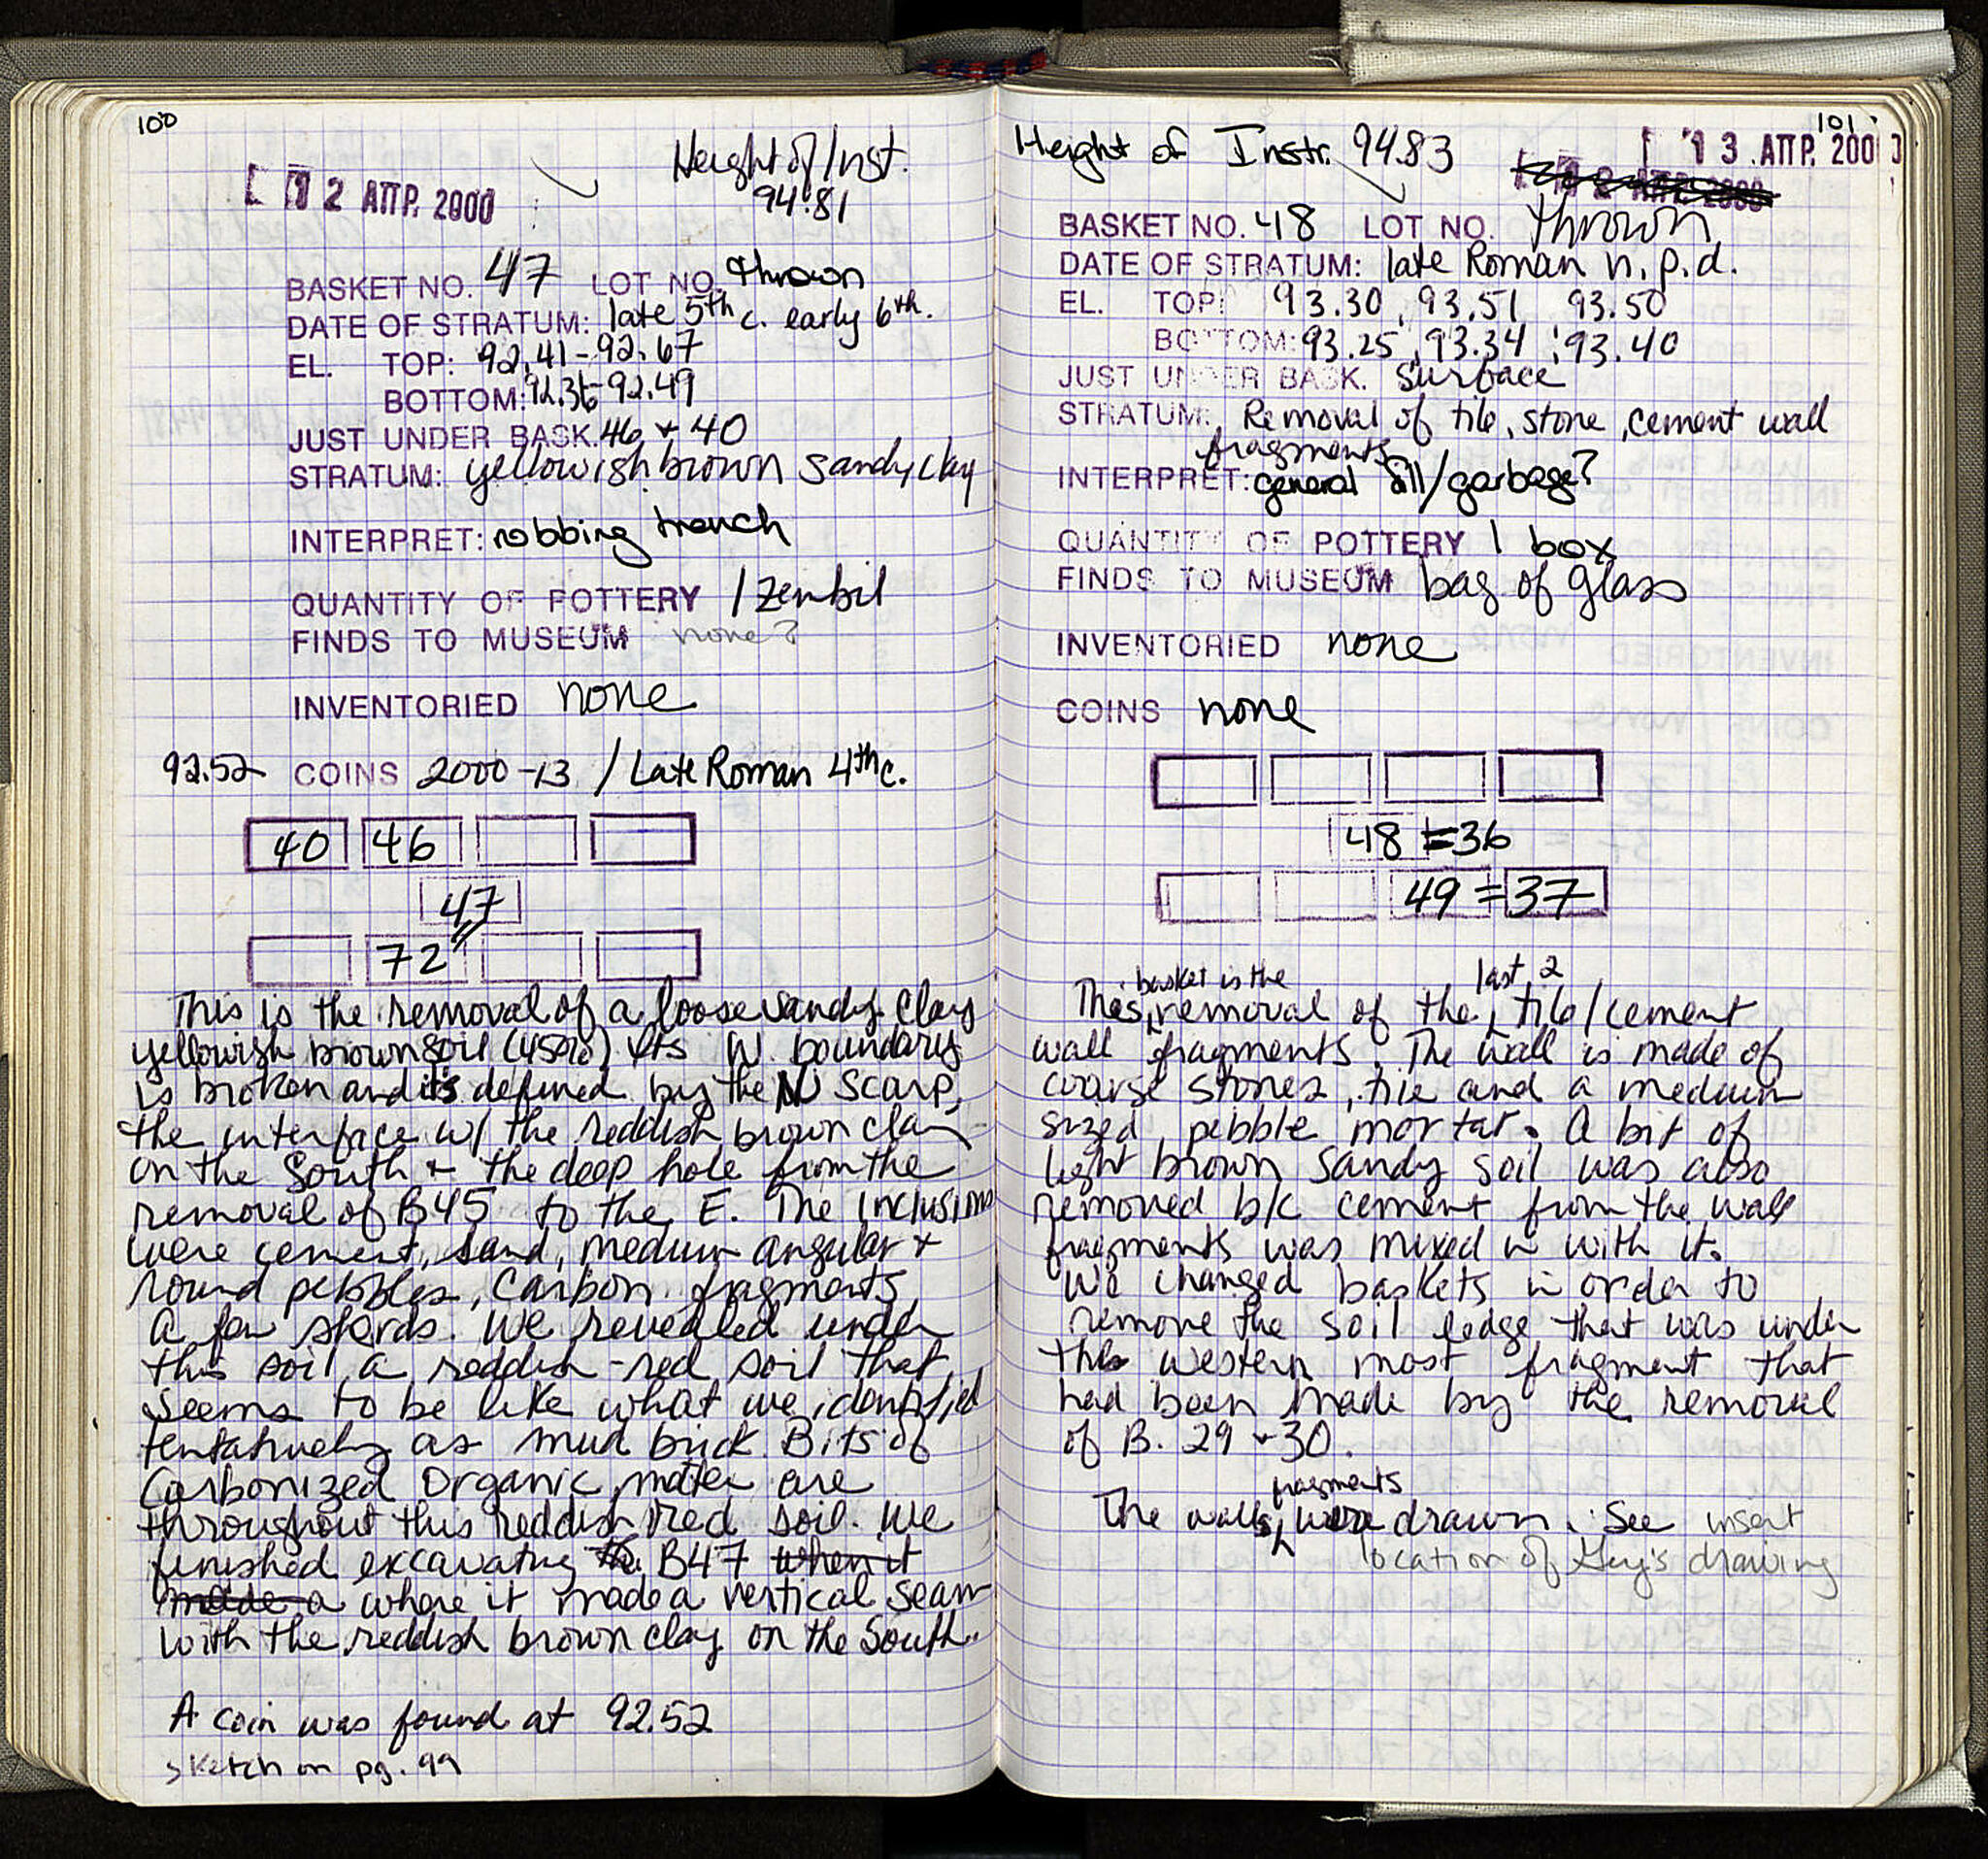 100
Height of Inst.
94.81
12 ΑΠΡ. 2000
BASKET NO. 47 LOT NO. thrown
DATE OF STRATUM: late 5th c. early 6th.
EL. TOP: 92.41-92.67
BOTTOM: 92.36-92.49
JUST UNDER BASK. 46 + 40
STRATUM: yellowish brown sandy clay
INTERPRET: robbing trench
QUANTITY OF POTTERY 1 Zembil
FINDS TO MUSEUM none?
INVENTORIED none
92.52 COINS 2000-13 / Late Roman 4th c.
40 46
47
72
This is the removal of a loose sandy clay
yellowish brown soil (45%) Its W. boundary
is broken and its defined by the N scarp,
the interface w/ the reddish brown clay
on the South + the deep hole from the
removal of B45 to the E. The inclusions
were cement, sand, medium angular +
round pebbles, carbon fragments,
a few sherds. We revealed under
this soil a reddish-red soil that
seems to be like what we identified
tentatively as mud brick. Bits of
carbonized organic matter are
throughout this reddish red soil. We
finished excavating the B47 when it
made a where it made a vertical seam
with the reddish brown clay on the South.
A coin was found at 92.52
sketch on pg. 99
101
Height of Instr. 94.83
13 ΑΠΡ. 2000
BASKET NO. 48 LOT NO. thrown
DATE OF STRATUM: late Roman n.p.d.
EL. TOP: 93.30, 93.51 93.50
BOTTOM: 93.25, 93.34, 93.40
JUST UNDER BASK. surface
STRATUM: Removal of tile, stone, cement wall
fragments
INTERPRET: general fill/garbage?
QUANTITY OF POTTERY 1 box
FINDS TO MUSEUM bag of glass
INVENTORIED none
COINS none
48 = 36
49 = 37
basket is the last 2
This removal of the tile/cement
wall fragments. The wall is made of
coarse stones, tile and a medium
sized pebble mortar. A bit of
light brown sandy soil was also
removed b/c cement from the wall
fragments was mixed in with it.
We changed baskets in order to
remove the soil ledge that was under
the western most fragment that
had been made by the removal
of B. 29 + 30.
fragments
The walls were drawn. See insert
location of Guy's drawing